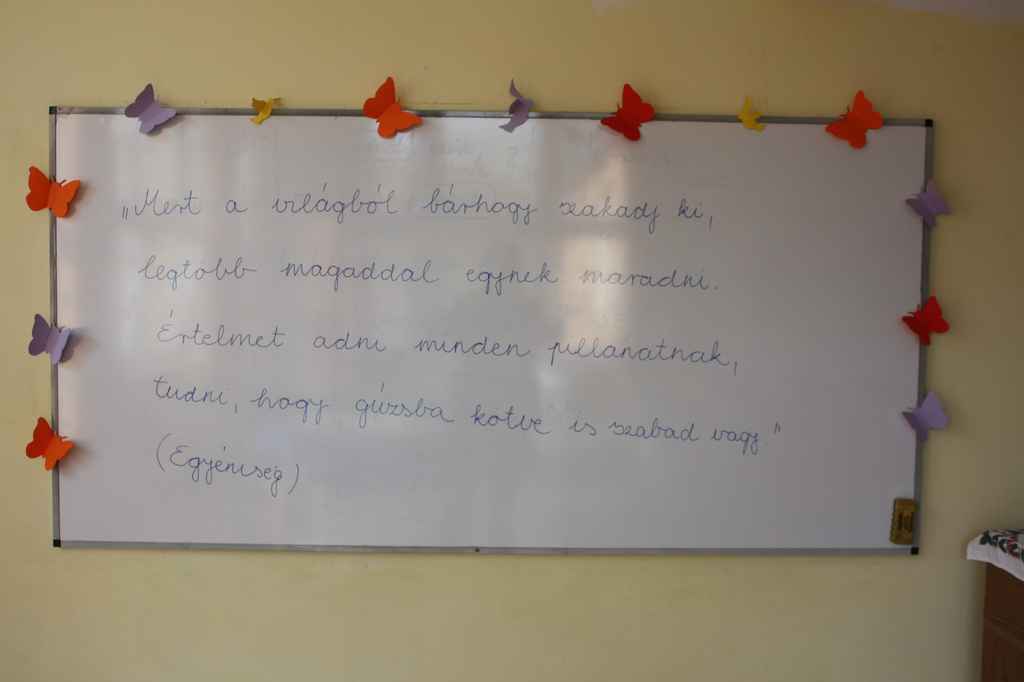 „Mert a világból bárhogy szakadj ki,
legtöbb magaddal egynek maradni.
Értelmet adni minden pillanatnak,
tudni, hogy gúzsba kötve is szabad vagy."
(Egyéniség)